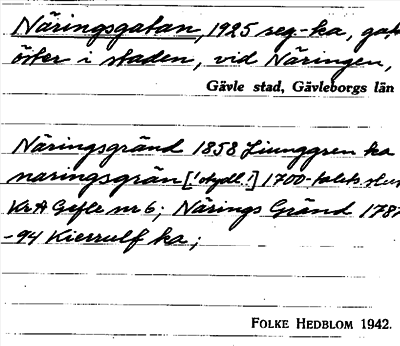 Näringsgatan, 1925 reg-ka, gat
öster i staden, vid Näringen,
Gävle stad, Gävleborgs län
Näringsgränd 1858 Ljunggren ka
naringsgrän [! otydl.?] 1700-talets slut
Kr A Gefle nr 6; Närings Gränd 1787
-94 Kierrulf ka;
FOLKE HEDBLOM 1942.